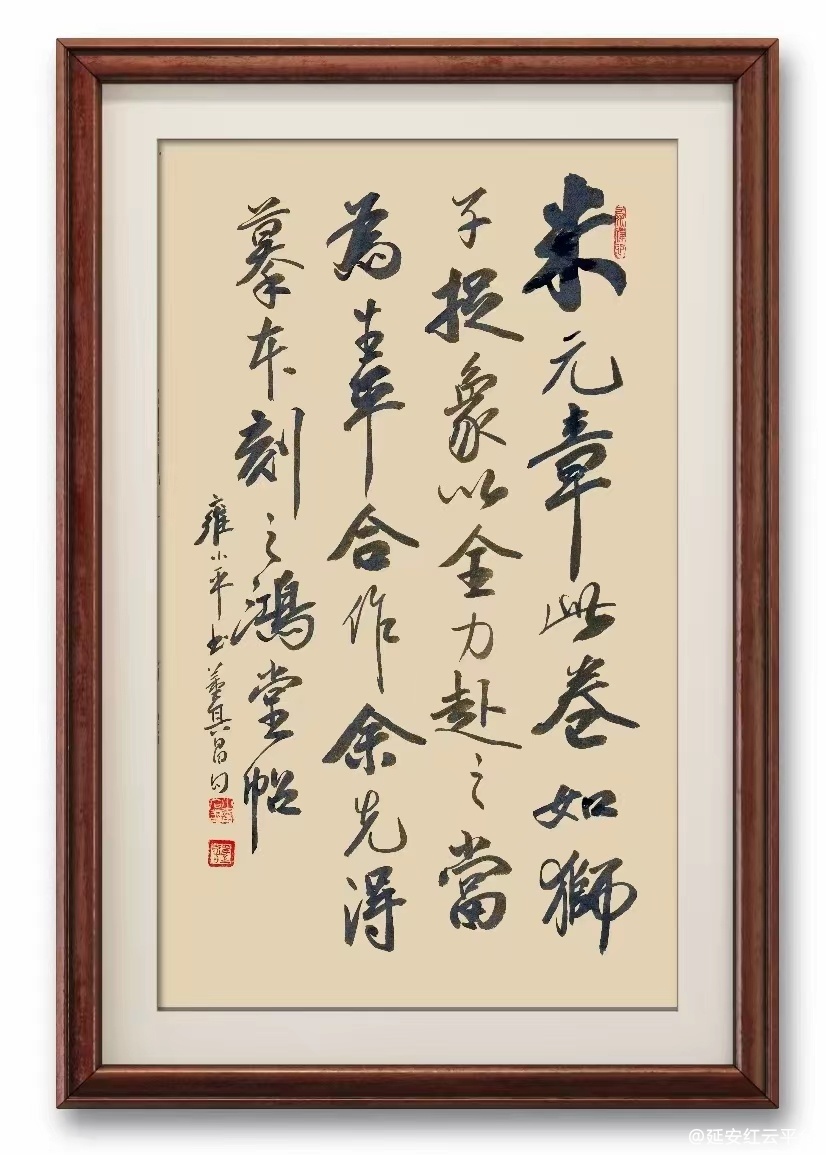 米元章此卷如獅
子捉象以全力赴之當
為生平合作余先得
摹本刻之鴻堂帖
雍小平书董其昌句
@延安红云平